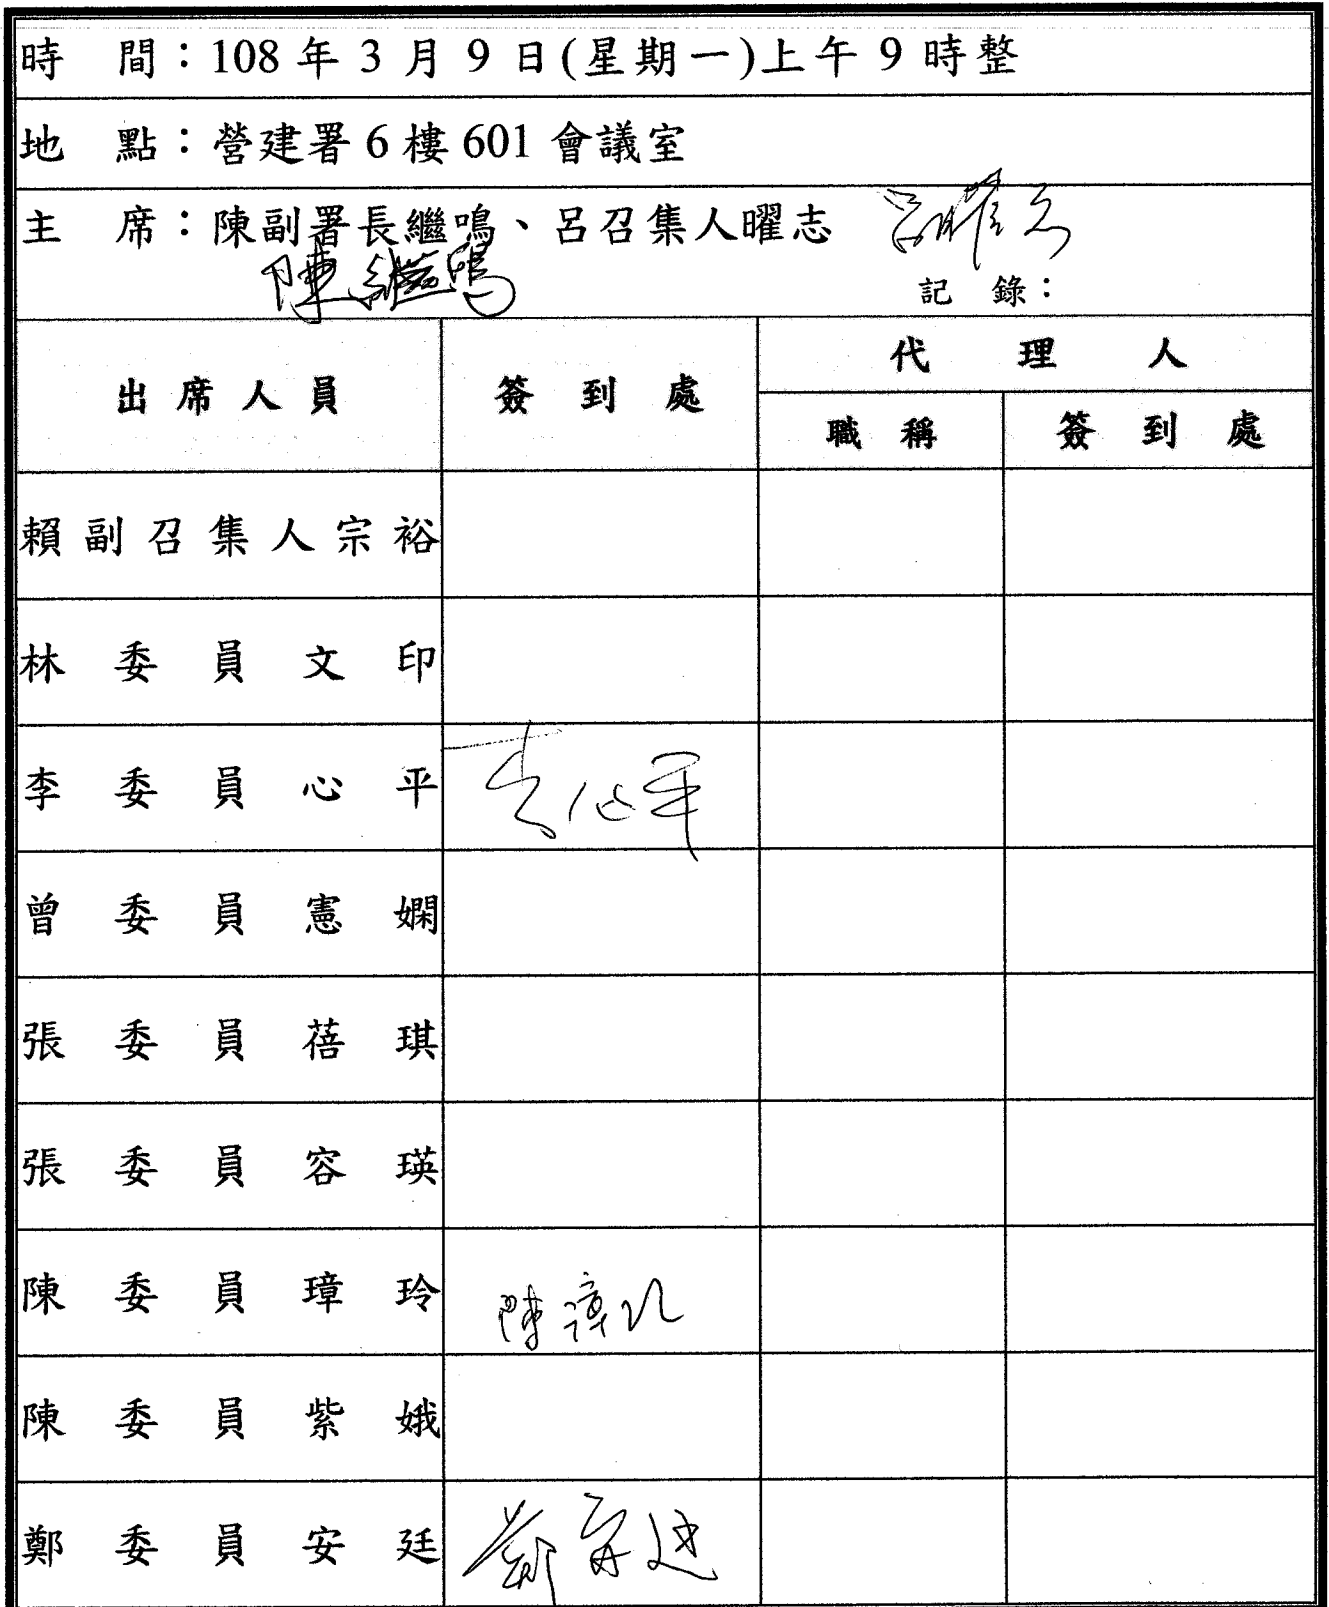 時間：108年3月9日(星期一)上午9時整
地點：營建署6樓601會議室
主席：陳副署長繼鳴、呂召集人曜志 呂曜志
陳繼鳴
記錄：
出席人員 簽到處 代理人
職稱 簽到處
賴副召集人宗裕
林委員文印
李委員心平 李心平
曾委員憲嫻
張委員蓓琪
張委員容瑛
陳委員璋玲 陳璋玲
陳委員紫娥
鄭委員安廷 鄭安廷